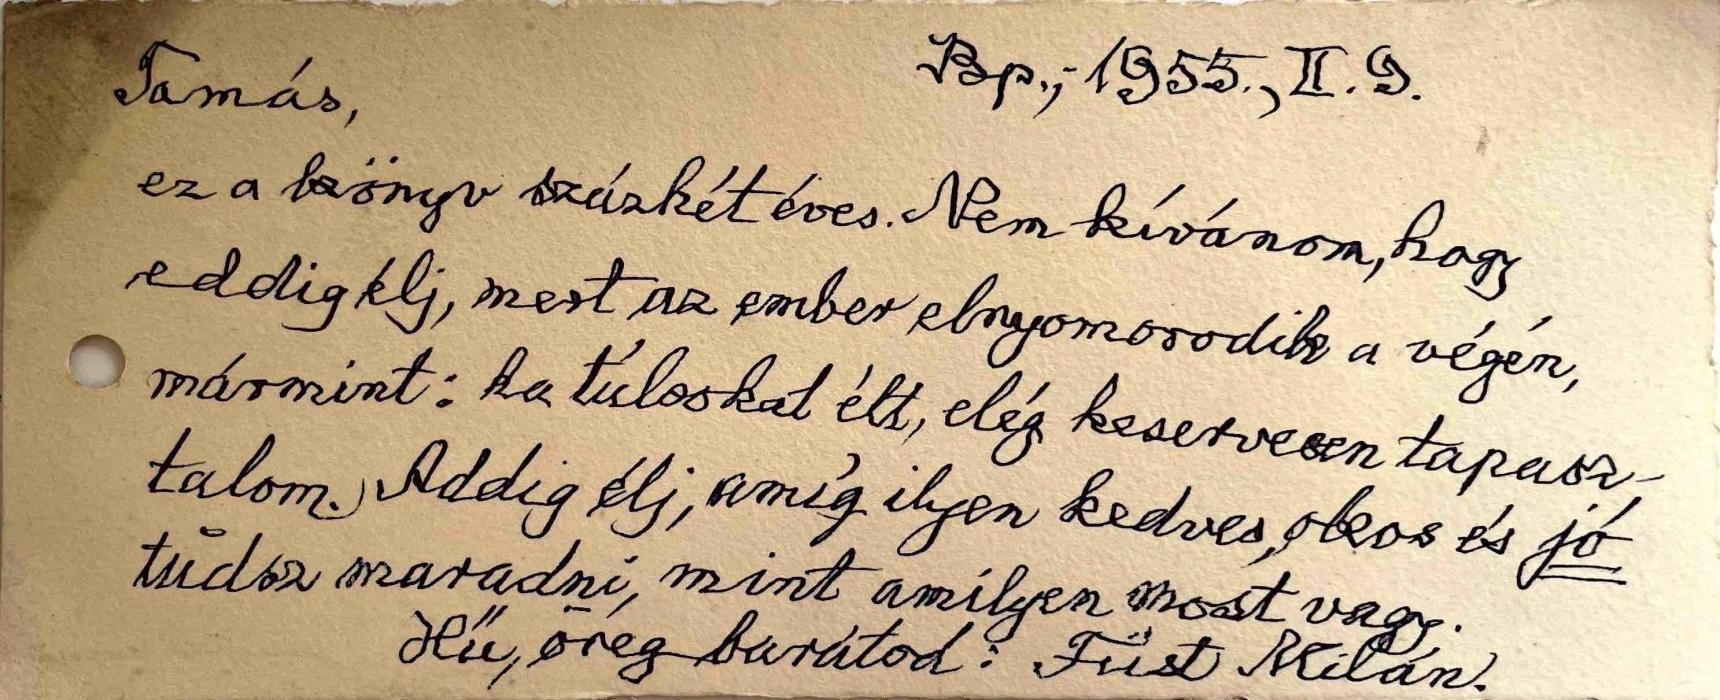 Bp., 1955., II. 9.
Tamás,
ez a könyv százkét éves. Nem kívánom, hogy
eddig élj, mert az ember elnyomorodik a végén,
mármint: ha túlsokat élt, elég keservesen tapasz-
talom. Addig élj, amíg ilyen kedves, okos és jó
tudsz maradni, mint amilyen most vagy.
Hű, öreg barátod: Füst Milán.